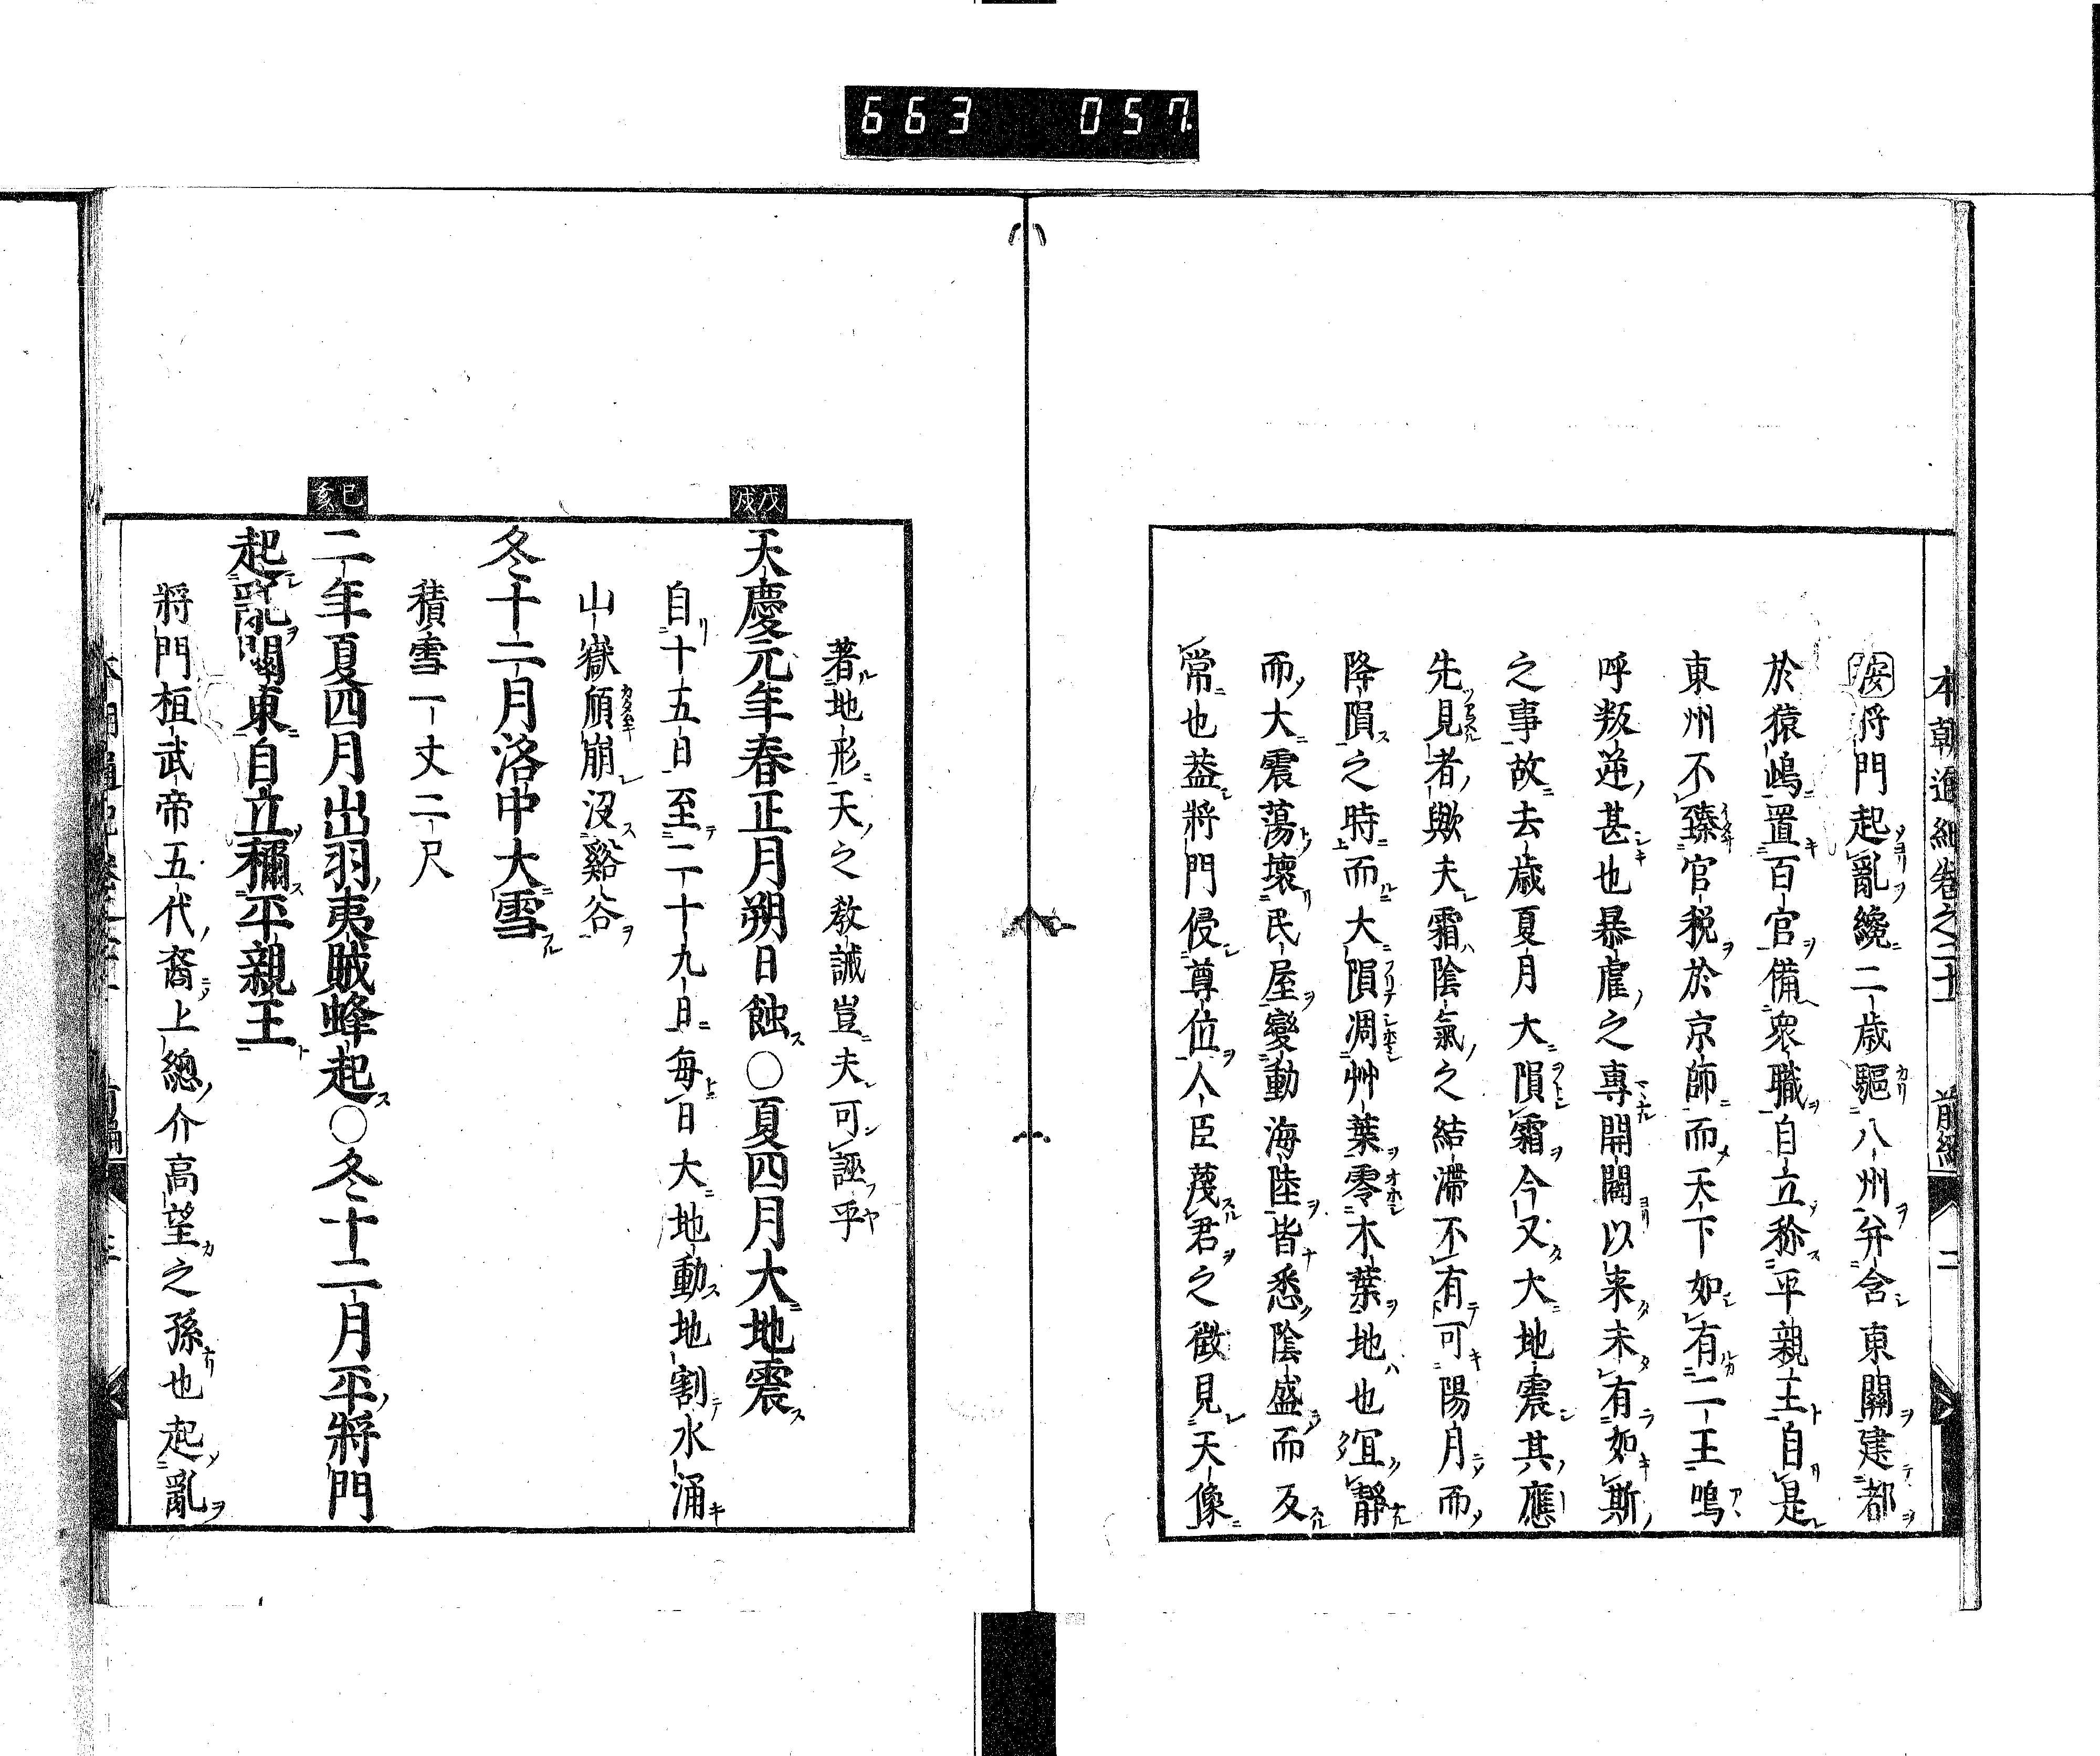 663 057
按將門起亂纔二歳驅八州弁含東關建都
於猿嶋置百官備衆職自立称平親王自是
東州不臻官税於京師而天下如有二王嗚
呼叛逆甚也暴虐之專開闢以来未有如斯
之事故去歳夏月大隕霜今又大地震其應
先見者歟夫霜陰氣之結滯不有可陽月而
降隕之時而大隕凋艸葉零木葉地也冝靜
而大震蕩壞民屋變動海陸皆悉陰盛而反
常也葢將門侵尊位人臣蔑君之徴見天像
著地形天之教誡豈夫可誣乎
戊戌
天慶元年春正月朔日蝕○夏四月大地震
自十五日至二十九日毎日大地動地割水涌
山嶽頎崩没谿谷
冬十二月洛中大雪
積雪一丈二尺
巳亥
二年夏四月出羽夷賊蜂起○冬十二月平將門
起亂關東自立稱平親王
將門桓武帝五代裔上總介高望之孫也起亂